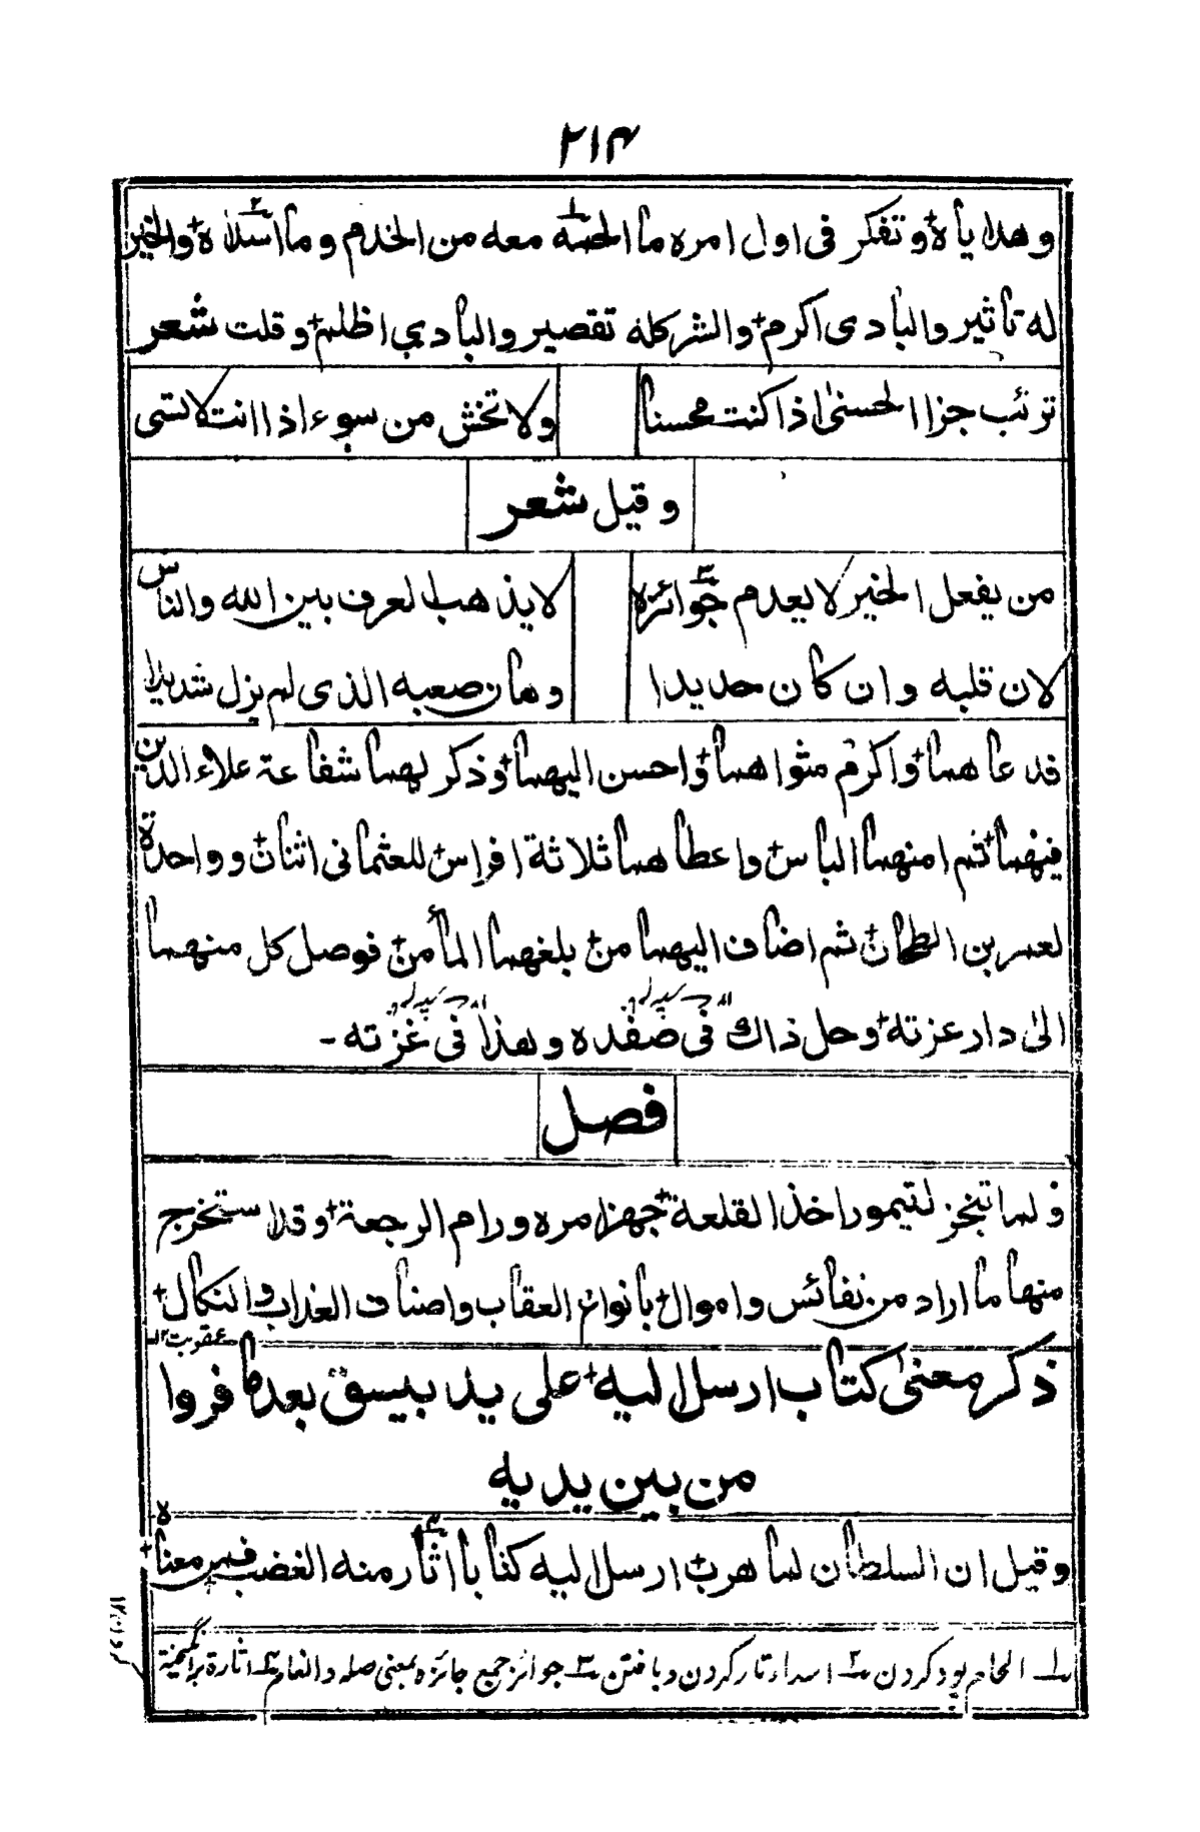 ٢١٤
وهداياه وتفكر فى اول امره ما الحمه معه من الخدم وما اسداه والخير
له تاثير والبادى اكرم والشر كله تقصير والبادي اظلم وقلت شعر
ترتب جزا الحسنىٰ اذا كنت محسنا
ولا تخش من سوء اذا انت لا تسى
وقيل شعر
من يفعل الخير لا يعدم جوائزه
لا يذهب العرف بين الله والناس
لان قلبه وان كان حديدا
وهان صعبه الذى لم يزل شديدا
فدعاهما واكرم مثواهما واحسن اليهما وذكر لهما شفاعة علاء الدين
فيهما ثم امنهما الباس واعطاهما ثلاثة افراس للعثمانى اثنان وواحدة
لعمر بن الطحان ثم اضاف اليهما من بلغهما المأمن فوصل كل منهما
الىٰ دار عزته وحل ذاك فى صفده وهذا فى غزته -
فصل
ولما تنجز لتيمور اخذ القلعة جهز امره ورام الرجعة وقد استخرج
منها ما اراد من نفائس واموال بانواع العقاب واصناف العذاب والنكال
عقوبت ١٢
ذكر معنىٰ كتاب ارسل اليه على يد بيسق بعد ما فروا
من بين يديه
وقيل ان السلطان لما هرب ارسل اليه كتابا اثار منه الغضب فمن معناه
١ـ الحام پود كردن ٢ـ اسداء تار كردن و بافتن ٣ـ جوائز جمع جائزه بمعنى صله و انعام ٤ـ اثارة برانگیختن